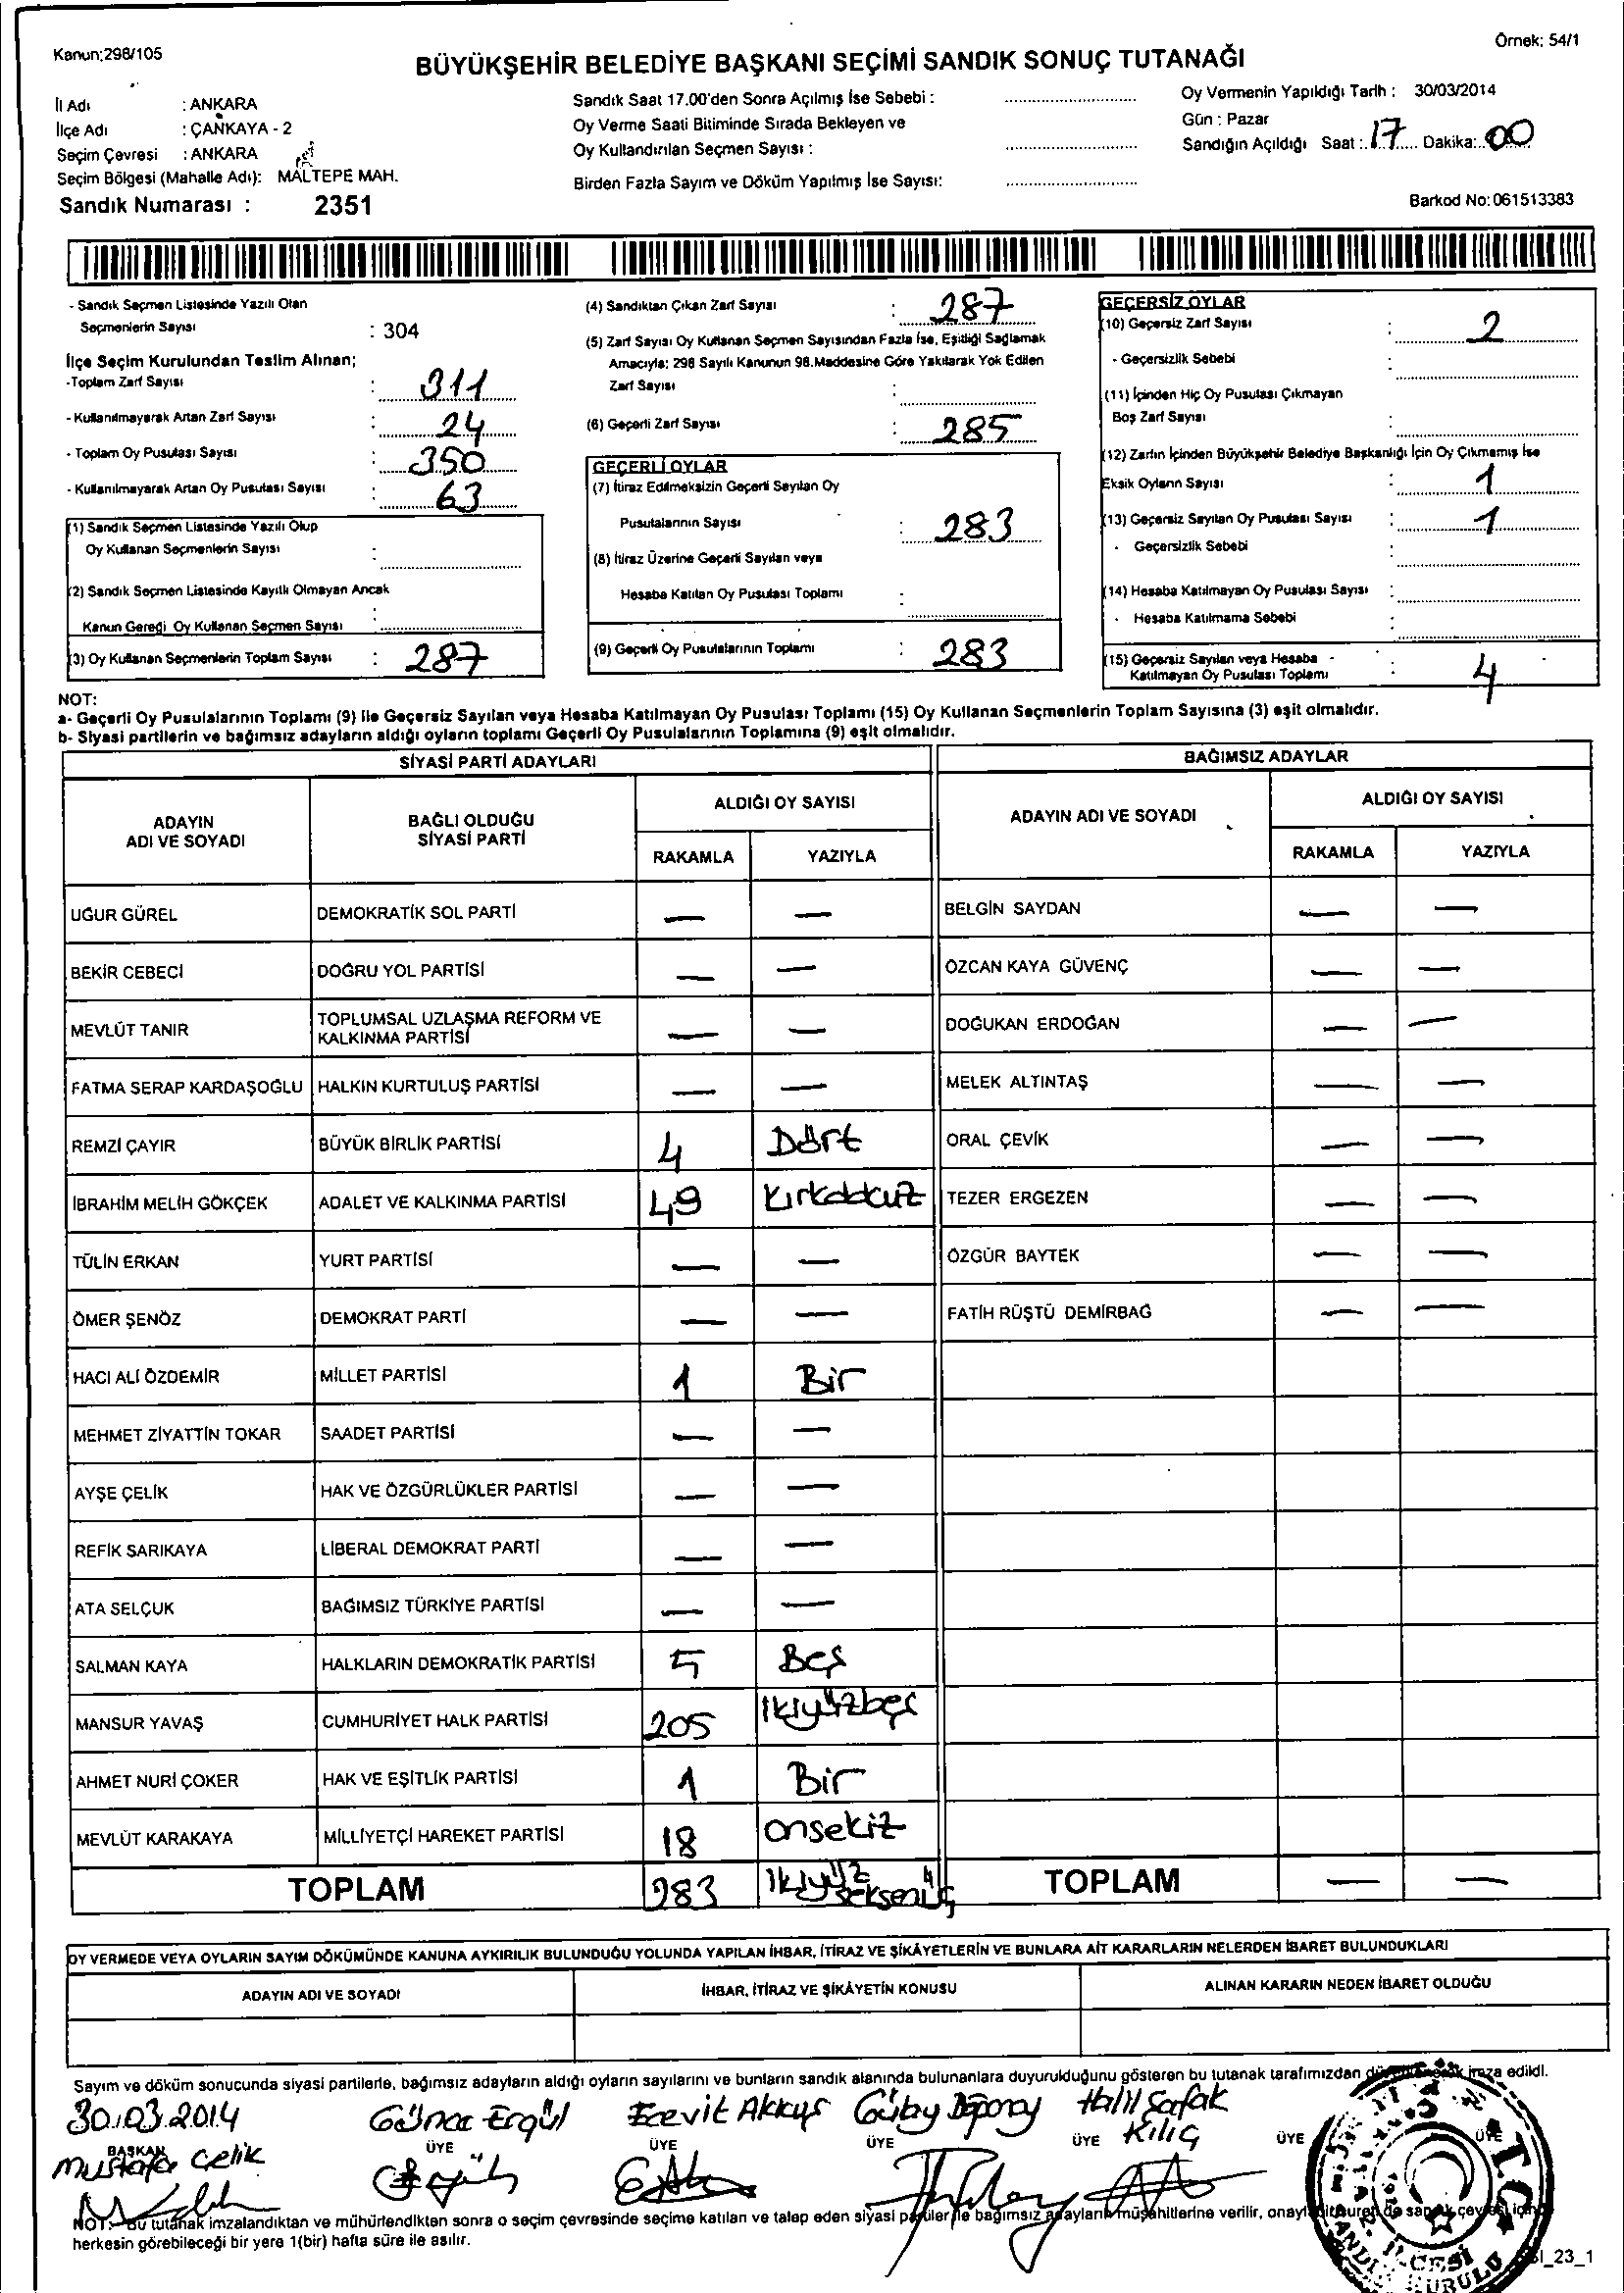 Kanun;298/105
Örnek: 54/1
BÜYÜKŞEHİR BELEDİYE BAŞKANI SEÇİMİ SANDIK SONUÇ TUTANAĞI
İl Adı : ANKARA
İlçe Adı : ÇANKAYA - 2
Seçim Çevresi : ANKARA
Seçim Bölgesi (Mahalle Adı): MALTEPE MAH.
Sandık Numarası : 2351
Sandık Saat 17.00'den Sonra Açılmış İse Sebebi :
Oy Verme Saati Bitiminde Sırada Bekleyen ve
Oy Kullandırılan Seçmen Sayısı :
Birden Fazla Sayım ve Döküm Yapılmış İse Sayısı:
Oy Vermenin Yapıldığı Tarih : 30/03/2014
Gün : Pazar
Sandığın Açıldığı Saat : 17 Dakika: 00
Barkod No: 061513383
- Sandık Seçmen Listesinde Yazılı Olan
Seçmenlerin Sayısı : 304
İlçe Seçim Kurulundan Teslim Alınan;
-Toplam Zarf Sayısı : 311
- Kullanılmayarak Artan Zarf Sayısı : 24
- Toplam Oy Pusulası Sayısı : 350
- Kullanılmayarak Artan Oy Pusulası Sayısı : 63
(1) Sandık Seçmen Listesinde Yazılı Olup
Oy Kullanan Seçmenlerin Sayısı :
(2) Sandık Seçmen Listesinde Kayıtlı Olmayan Ancak
Kanun Gereği Oy Kullanan Seçmen Sayısı :
(3) Oy Kullanan Seçmenlerin Toplam Sayısı : 287
(4) Sandıktan Çıkan Zarf Sayısı : 287
(5) Zarf Sayısı Oy Kullanan Seçmen Sayısından Fazla İse, Eşitliği Sağlamak
Amacıyla; 298 Sayılı Kanunun 98.Maddesine Göre Yakılarak Yok Edilen
Zarf Sayısı :
(6) Geçerli Zarf Sayısı : 285
GEÇERLİ OYLAR
(7) İtiraz Edilmeksizin Geçerli Sayılan Oy
Pusulalarının Sayısı : 283
(8) İtiraz Üzerine Geçerli Sayılan veya
Hesaba Katılan Oy Pusulası Toplamı :
(9) Geçerli Oy Pusulalarının Toplamı : 283
GEÇERSİZ OYLAR
(10) Geçersiz Zarf Sayısı : 2
- Geçersizlik Sebebi :
(11) İçinden Hiç Oy Pusulası Çıkmayan
Boş Zarf Sayısı :
(12) Zarfın İçinden Büyükşehir Belediye Başkanlığı İçin Oy Çıkmamış İse
Eksik Oyların Sayısı : 1
(13) Geçersiz Sayılan Oy Pusulası Sayısı : 1
- Geçersizlik Sebebi :
(14) Hesaba Katılmayan Oy Pusulası Sayısı :
- Hesaba Katılmama Sebebi :
(15) Geçersiz Sayılan veya Hesaba
Katılmayan Oy Pusulası Toplamı : 4
NOT:
a- Geçerli Oy Pusulalarının Toplamı (9) ile Geçersiz Sayılan veya Hesaba Katılmayan Oy Pusulası Toplamı (15) Oy Kullanan Seçmenlerin Toplam Sayısına (3) eşit olmalıdır.
b- Siyasi partilerin ve bağımsız adayların aldığı oyların toplamı Geçerli Oy Pusulalarının Toplamına (9) eşit olmalıdır.
SİYASİ PARTİ ADAYLARI
BAĞIMSIZ ADAYLAR
ADAYIN ADI VE SOYADI
BAĞLI OLDUĞU SİYASİ PARTİ
ALDIĞI OY SAYISI
RAKAMLA YAZIYLA
ADAYIN ADI VE SOYADI
ALDIĞI OY SAYISI
RAKAMLA YAZIYLA
UĞUR GÜREL DEMOKRATİK SOL PARTİ — — BELGİN SAYDAN — —
BEKİR CEBECİ DOĞRU YOL PARTİSİ — — ÖZCAN KAYA GÜVENÇ — —
MEVLÜT TANIR TOPLUMSAL UZLAŞMA REFORM VE KALKINMA PARTİSİ — — DOĞUKAN ERDOĞAN — —
FATMA SERAP KARDAŞOĞLU HALKIN KURTULUŞ PARTİSİ — — MELEK ALTINTAŞ — —
REMZİ ÇAYIR BÜYÜK BİRLİK PARTİSİ 4 Dört ORAL ÇEVİK — —
İBRAHİM MELİH GÖKÇEK ADALET VE KALKINMA PARTİSİ 49 Kırkdokuz TEZER ERGEZEN — —
TÜLİN ERKAN YURT PARTİSİ — — ÖZGÜR BAYTEK — —
ÖMER ŞENÖZ DEMOKRAT PARTİ — — FATİH RÜŞTÜ DEMİRBAĞ — —
HACI ALİ ÖZDEMİR MİLLET PARTİSİ 1 Bir
MEHMET ZİYATTİN TOKAR SAADET PARTİSİ — —
AYŞE ÇELİK HAK VE ÖZGÜRLÜKLER PARTİSİ — —
REFİK SARIKAYA LİBERAL DEMOKRAT PARTİ — —
ATA SELÇUK BAĞIMSIZ TÜRKİYE PARTİSİ — —
SALMAN KAYA HALKLARIN DEMOKRATİK PARTİSİ 5 Beş
MANSUR YAVAŞ CUMHURİYET HALK PARTİSİ 205 ikiyüzbeş
AHMET NURİ ÇOKER HAK VE EŞİTLİK PARTİSİ 1 Bir
MEVLÜT KARAKAYA MİLLİYETÇİ HAREKET PARTİSİ 18 onsekiz
TOPLAM 283 ikiyüz seksenüç TOPLAM — —
OY VERMEDE VEYA OYLARIN SAYIM DÖKÜMÜNDE KANUNA AYKIRILIK BULUNDUĞU YOLUNDA YAPILAN İHBAR, İTİRAZ VE ŞİKÂYETLERİN VE BUNLARA AİT KARARLARIN NELERDEN İBARET BULUNDUKLARI
ADAYIN ADI VE SOYADI İHBAR, İTİRAZ VE ŞİKÂYETİN KONUSU ALINAN KARARIN NEDEN İBARET OLDUĞU
Sayım ve döküm sonucunda siyasi partilerle, bağımsız adayların aldığı oyların sayılarını ve bunların sandık alanında bulunanlara duyurulduğunu gösteren bu tutanak tarafımızdan imza edildi.
30.03.2014 Ergül Ecevit Akkuş Halil Şafak Kılıç
BAŞKAN ÜYE ÜYE ÜYE ÜYE ÜYE ÜYE
Mustafa Çelik
NOT:- Bu tutanak imzalandıktan ve mühürlendikten sonra o seçim çevresinde seçime katılan ve talep eden siyasi partiler ile bağımsız adayların müşahitlerine verilir,
herkesin görebileceği bir yere 1(bir) hafta süre ile asılır.
T.C.
İLÇESİ
_23_1